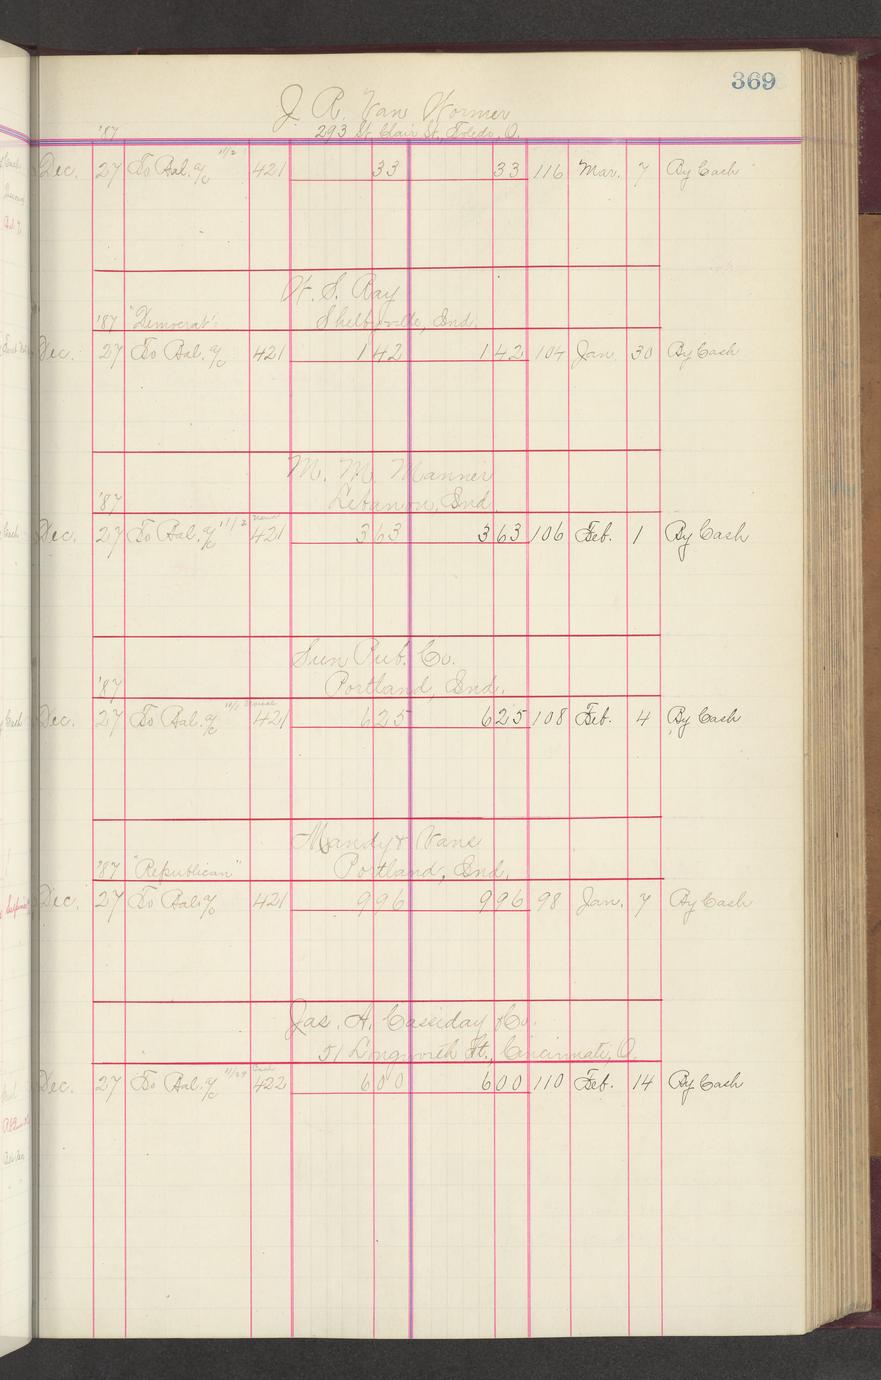 369
J. R. Van Wormer
'87 293 St. Clair St., Toledo, O.
Dec. 27 To Bal. a/c 11/2 421 33 33 116 Mar. 7 By Cash
W. S. Ray
'87 "Democrat" Shelbyville, Ind.
Dec. 27 To Bal. a/c 421 142 142 104 Jan. 30 By Cash
M. M. Manner
'87 Lebanon, Ind.
Dec. 27 To Bal. a/c 11/2 421 363 363 106 Feb. 1 By Cash
Sun Pub. Co.
'87 Portland, Ind.
Dec. 27 To Bal. a/c 421 625 625 108 Feb. 4 By Cash
Mandy & Vance
'87 "Republican" Portland, Ind.
Dec. 27 To Bal. a/c 421 996 996 98 Jan. 7 By Cash
Jas. A. Cassiday & Co.
51 Longworth St., Cincinnati, O.
Dec. 27 To Bal. a/c 11/29 Cash 422 600 600 110 Feb. 14 By Cash